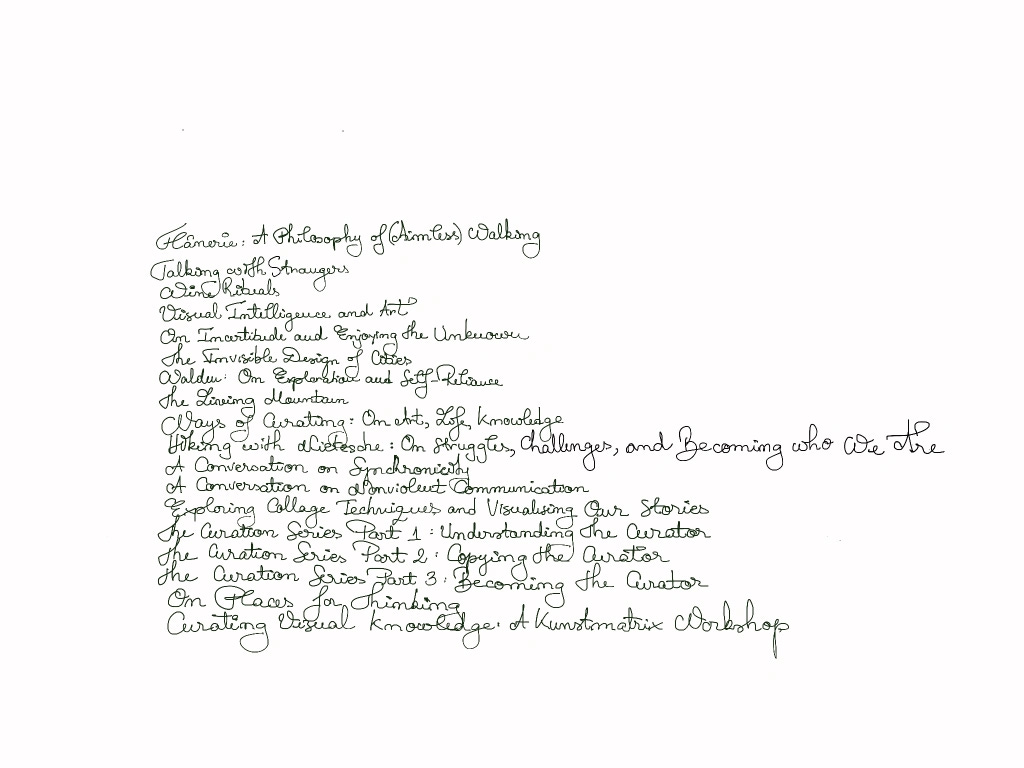 Flânerie: A Philosophy of (Aimless) Walking
Talking with Strangers
Wine Rituals
Visual Intelligence and Art
On Incertitude and Enjoying the Unknown
The Invisible Design of Cities
Walden: On Exploration and Self-Reliance
The Living Mountain
Ways of Curating: On Art, Life, Knowledge
Hiking with Nietzsche: On Struggles, Challenges, and Becoming who We Are
A Conversation on Synchronicity
A Conversation on Nonviolent Communication
Exploring Collage Techniques and Visualising Our Stories
The Curation Series Part 1: Understanding the Curator
The Curation Series Part 2: Copying the Curator
The Curation Series Part 3: Becoming the Curator
On Places for Thinking
Curating Visual Knowledge: A Kunstmatrix Workshop